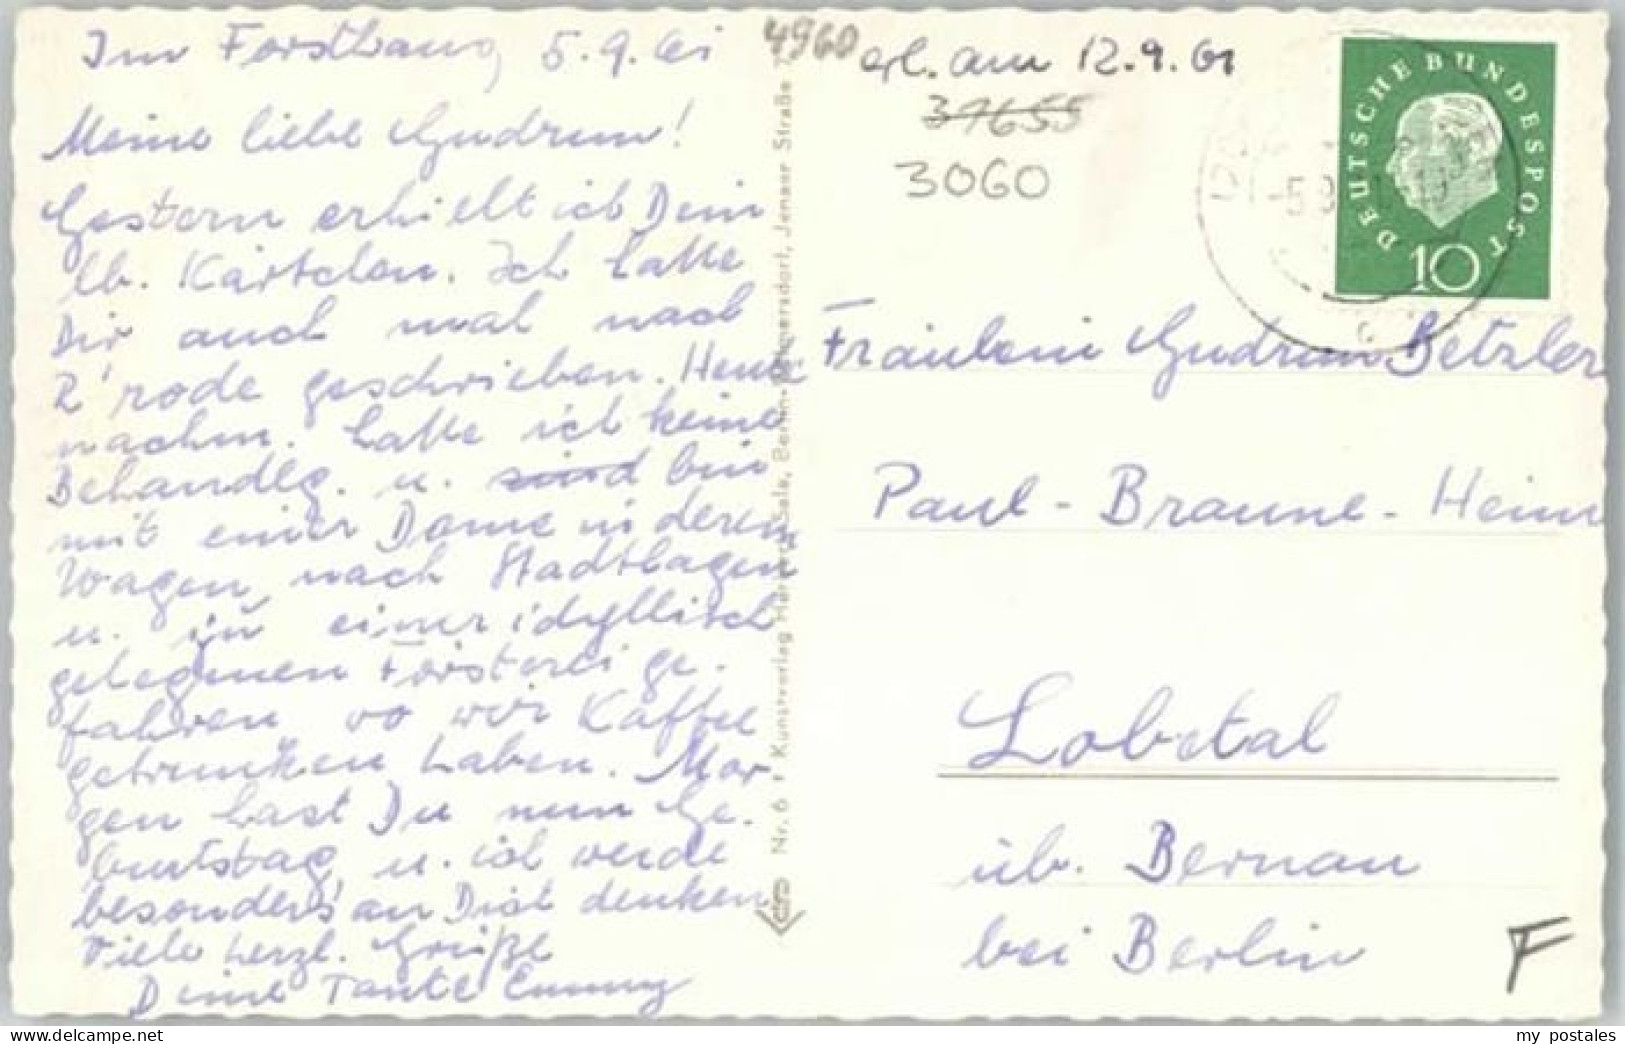 Im Forsthaus, 5.9.61
Meine liebe Gudrun!
Gestern erhielt ich Dein
lb. Kärtchen. Ich hatte
Dir auch mal nach
R'rode geschrieben. Heute
nachm. hatte ich keine
Behandlg. u. sind bin
mit einer Dame in deren
Wagen nach Stadthagen
u. zu einer idyllisch
gelegenen Försterei ge-
fahren wo wir Kaffee
getrunken haben. Mor-
gen hast Du nun Ge-
burtstag, u. ich werde
besonders an Dich denken
Viele herzl. Grüße
Deine Tante Emmy
Nr. 6 · Kunstverlag Berlin-Wilmersdorf, Jenaer Straße
4960
erl. am 12.9.61
31655
3060
DEUTSCHE BUNDESPOST
10
Fräulein Gudrun Betzler
Paul-Braune-Heim
Lobetal
üb. Bernau
bei Berlin
F
www.delcampe.net
my_postales